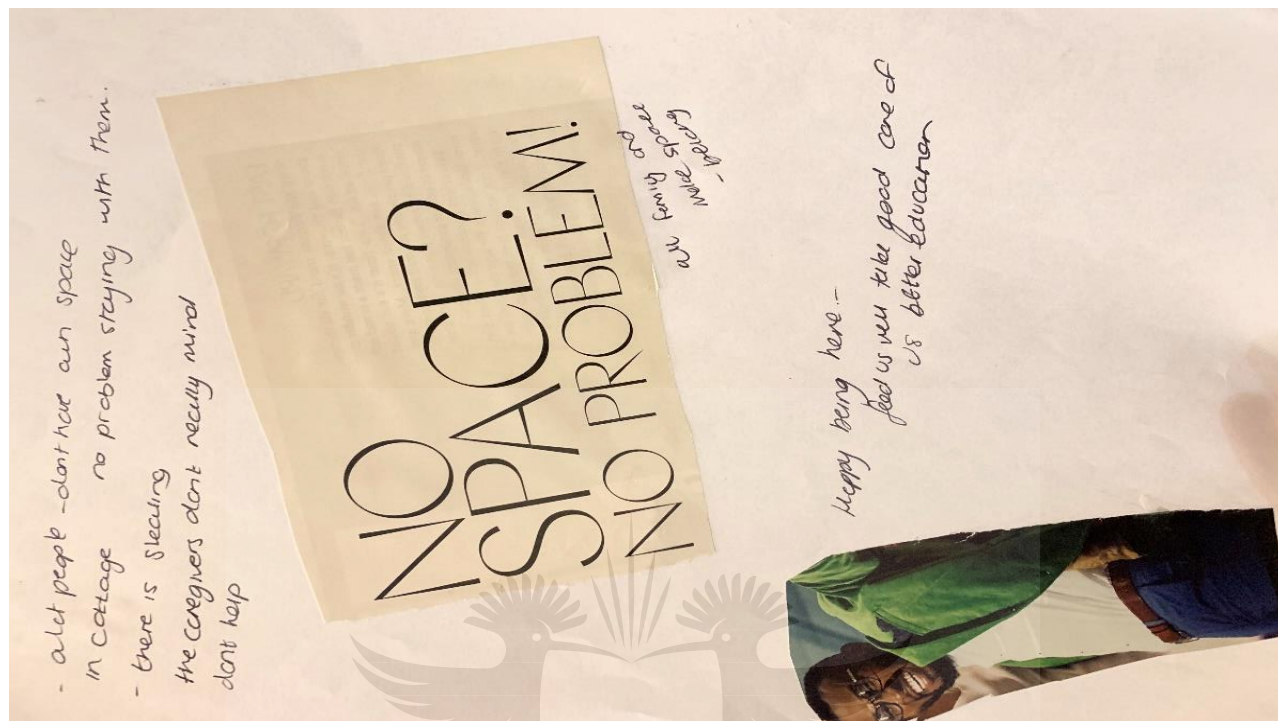 - alot people - dont have own space
in cottage no problem staying with them.
- there is stealing
the caregivers dont really mind
dont help
NO
SPACE?
NO PROBLEM!
all family and
make space
- belong
Happy being here -
feed us well take good care of
us better education